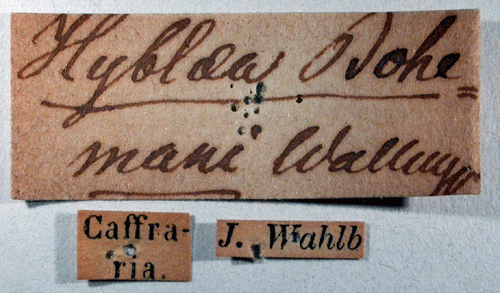 Hyblæa Bohe=
mani Wallengr
Caffra-
ria.
J. Wahlb